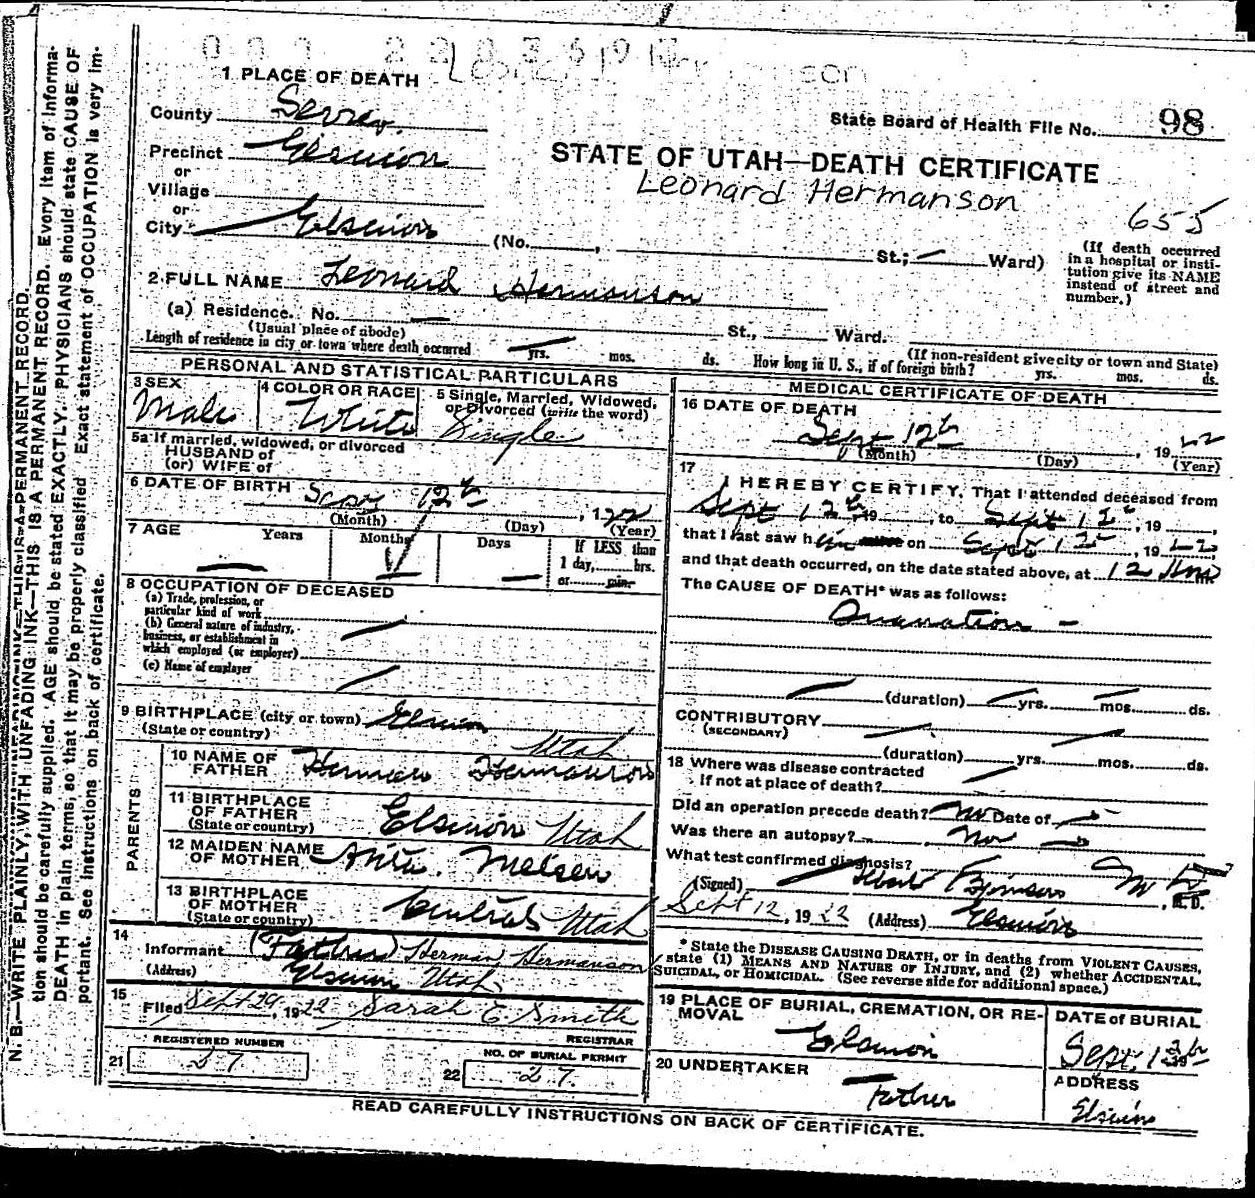 N. B.—WRITE PLAINLY, WITH UNFADING INK—THIS IS A PERMANENT RECORD. Every item of informa-
tion should be carefully supplied. AGE should be stated EXACTLY. PHYSICIANS should state CAUSE OF
DEATH in plain terms, so that it may be properly classified. Exact statement of OCCUPATION is very im-
portant. See instructions on back of certificate.
1 PLACE OF DEATH
County Sevier.
State Board of Health File No. 98
Precinct Elsinore
or
Village
or
City Elsinore
STATE OF UTAH—DEATH CERTIFICATE
Leonard Hermanson
655
(No. , St.; — Ward)
(If death occurred
in a hospital or insti-
tution give its NAME
instead of street and
number.)
2 FULL NAME Leonard Hermanson
(a) Residence. No. — St., Ward.
(Usual place of abode)
(If non-resident give city or town and State)
Length of residence in city or town where death occurred yrs. mos. ds. How long in U. S., if of foreign birth? yrs. mos. ds.
PERSONAL AND STATISTICAL PARTICULARS
3 SEX
Male
4 COLOR OR RACE
White
5 Single, Married, Widowed,
or Divorced (write the word)
Single
5a If married, widowed, or divorced
HUSBAND of
(or) WIFE of
6 DATE OF BIRTH 12th , 1922
(Month) (Day) (Year)
7 AGE Years Months Days If LESS than
1 day, hrs.
or min.
8 OCCUPATION OF DECEASED
(a) Trade, profession, or
particular kind of work
(b) General nature of industry,
business, or establishment in
which employed (or employer)
(c) Name of employer
9 BIRTHPLACE (city or town) Elsinore
(State or country) Utah
PARENTS
10 NAME OF
FATHER Herman Hermanson
11 BIRTHPLACE
OF FATHER
(State or country) Elsinore Utah
12 MAIDEN NAME
OF MOTHER Nielsen
13 BIRTHPLACE
OF MOTHER
(State or country) Central Utah
14
Informant (Father) Herman Hermanson
(Address) Elsinore Utah
15
Filed Sept 29, 1922 Sarah E Smith
REGISTRAR
REGISTERED NUMBER
21 27
NO. OF BURIAL PERMIT
22 27.
MEDICAL CERTIFICATE OF DEATH
16 DATE OF DEATH
Sept 12th , 1922
(Month) (Day) (Year)
17
I HEREBY CERTIFY, That I attended deceased from
Sept 12th, 19 , to Sept 12th, 19 ,
that I last saw him alive on Sept 12th , 1922
and that death occurred, on the date stated above, at 12
The CAUSE OF DEATH* was as follows:
Inanation —
(duration) yrs. mos. ds.
CONTRIBUTORY
(SECONDARY)
(duration) yrs. mos. ds.
18 Where was disease contracted
if not at place of death?
Did an operation precede death? No Date of
Was there an autopsy? No
What test confirmed diagnosis?
(Signed) , M. D.
Sept 12, 1922 (Address) Elsinore
* State the DISEASE CAUSING DEATH, or in deaths from VIOLENT CAUSES,
state (1) MEANS AND NATURE OF INJURY, and (2) whether ACCIDENTAL,
SUICIDAL, or HOMICIDAL. (See reverse side for additional space.)
19 PLACE OF BURIAL, CREMATION, OR RE-
MOVAL
Elsinore
DATE of BURIAL
Sept.
20 UNDERTAKER
Father
ADDRESS
Elsinore
READ CAREFULLY INSTRUCTIONS ON BACK OF CERTIFICATE.